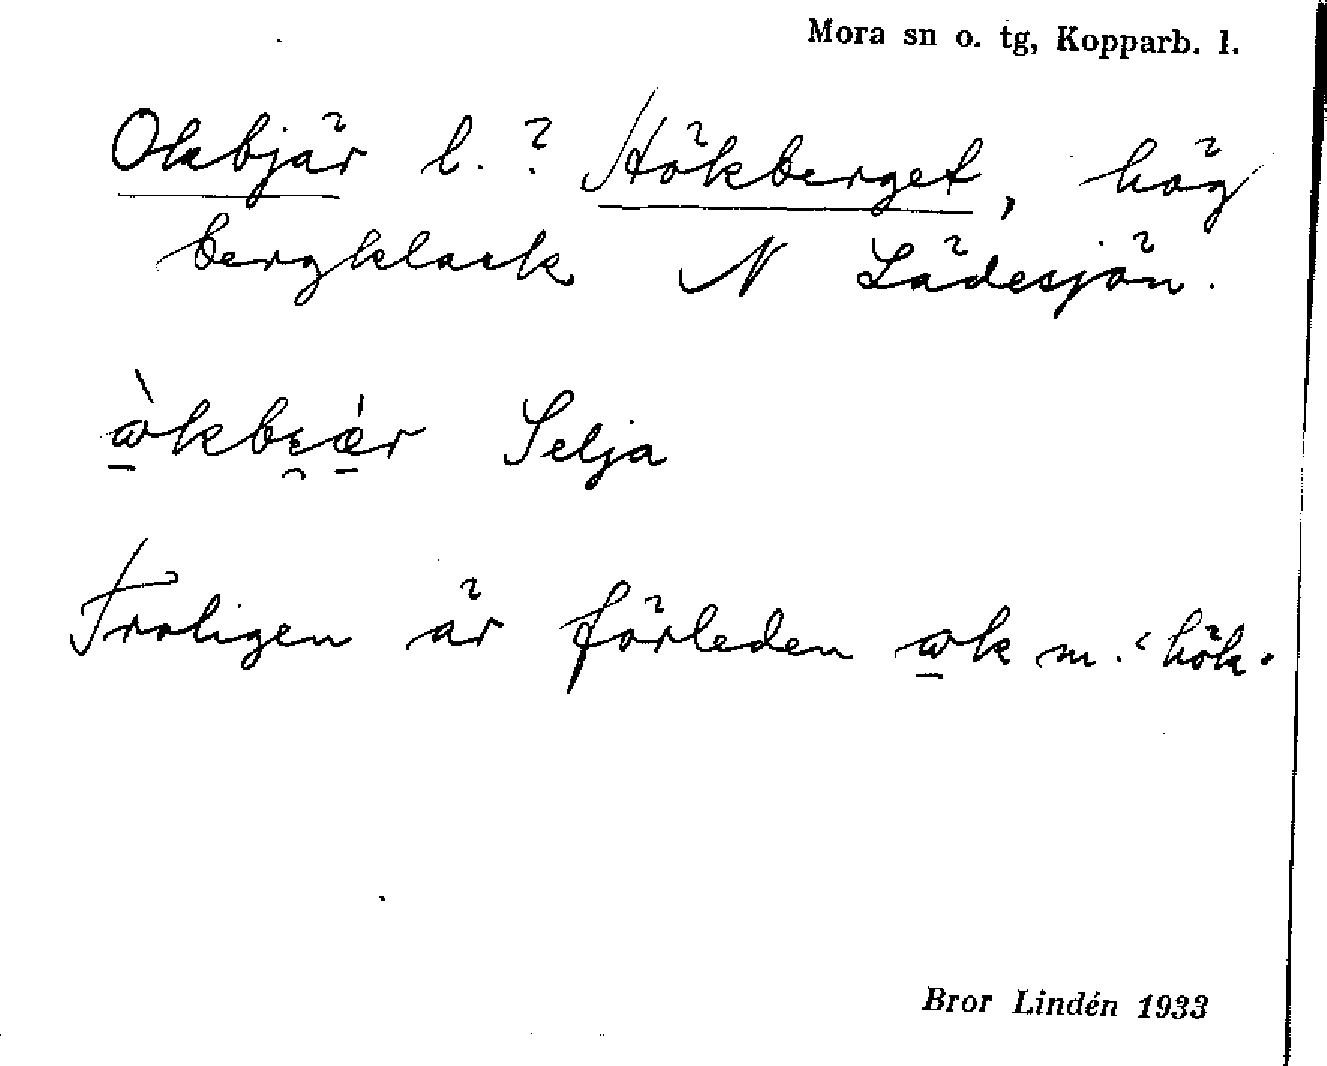 Mora sn o. tg, Kopparb. l.
Okbjär l. ? Hökberget, hög
bergklack N Lädesjön.
Selja
Troligen är förleden ωk m. ‘hök’
Bror Lindén 1933